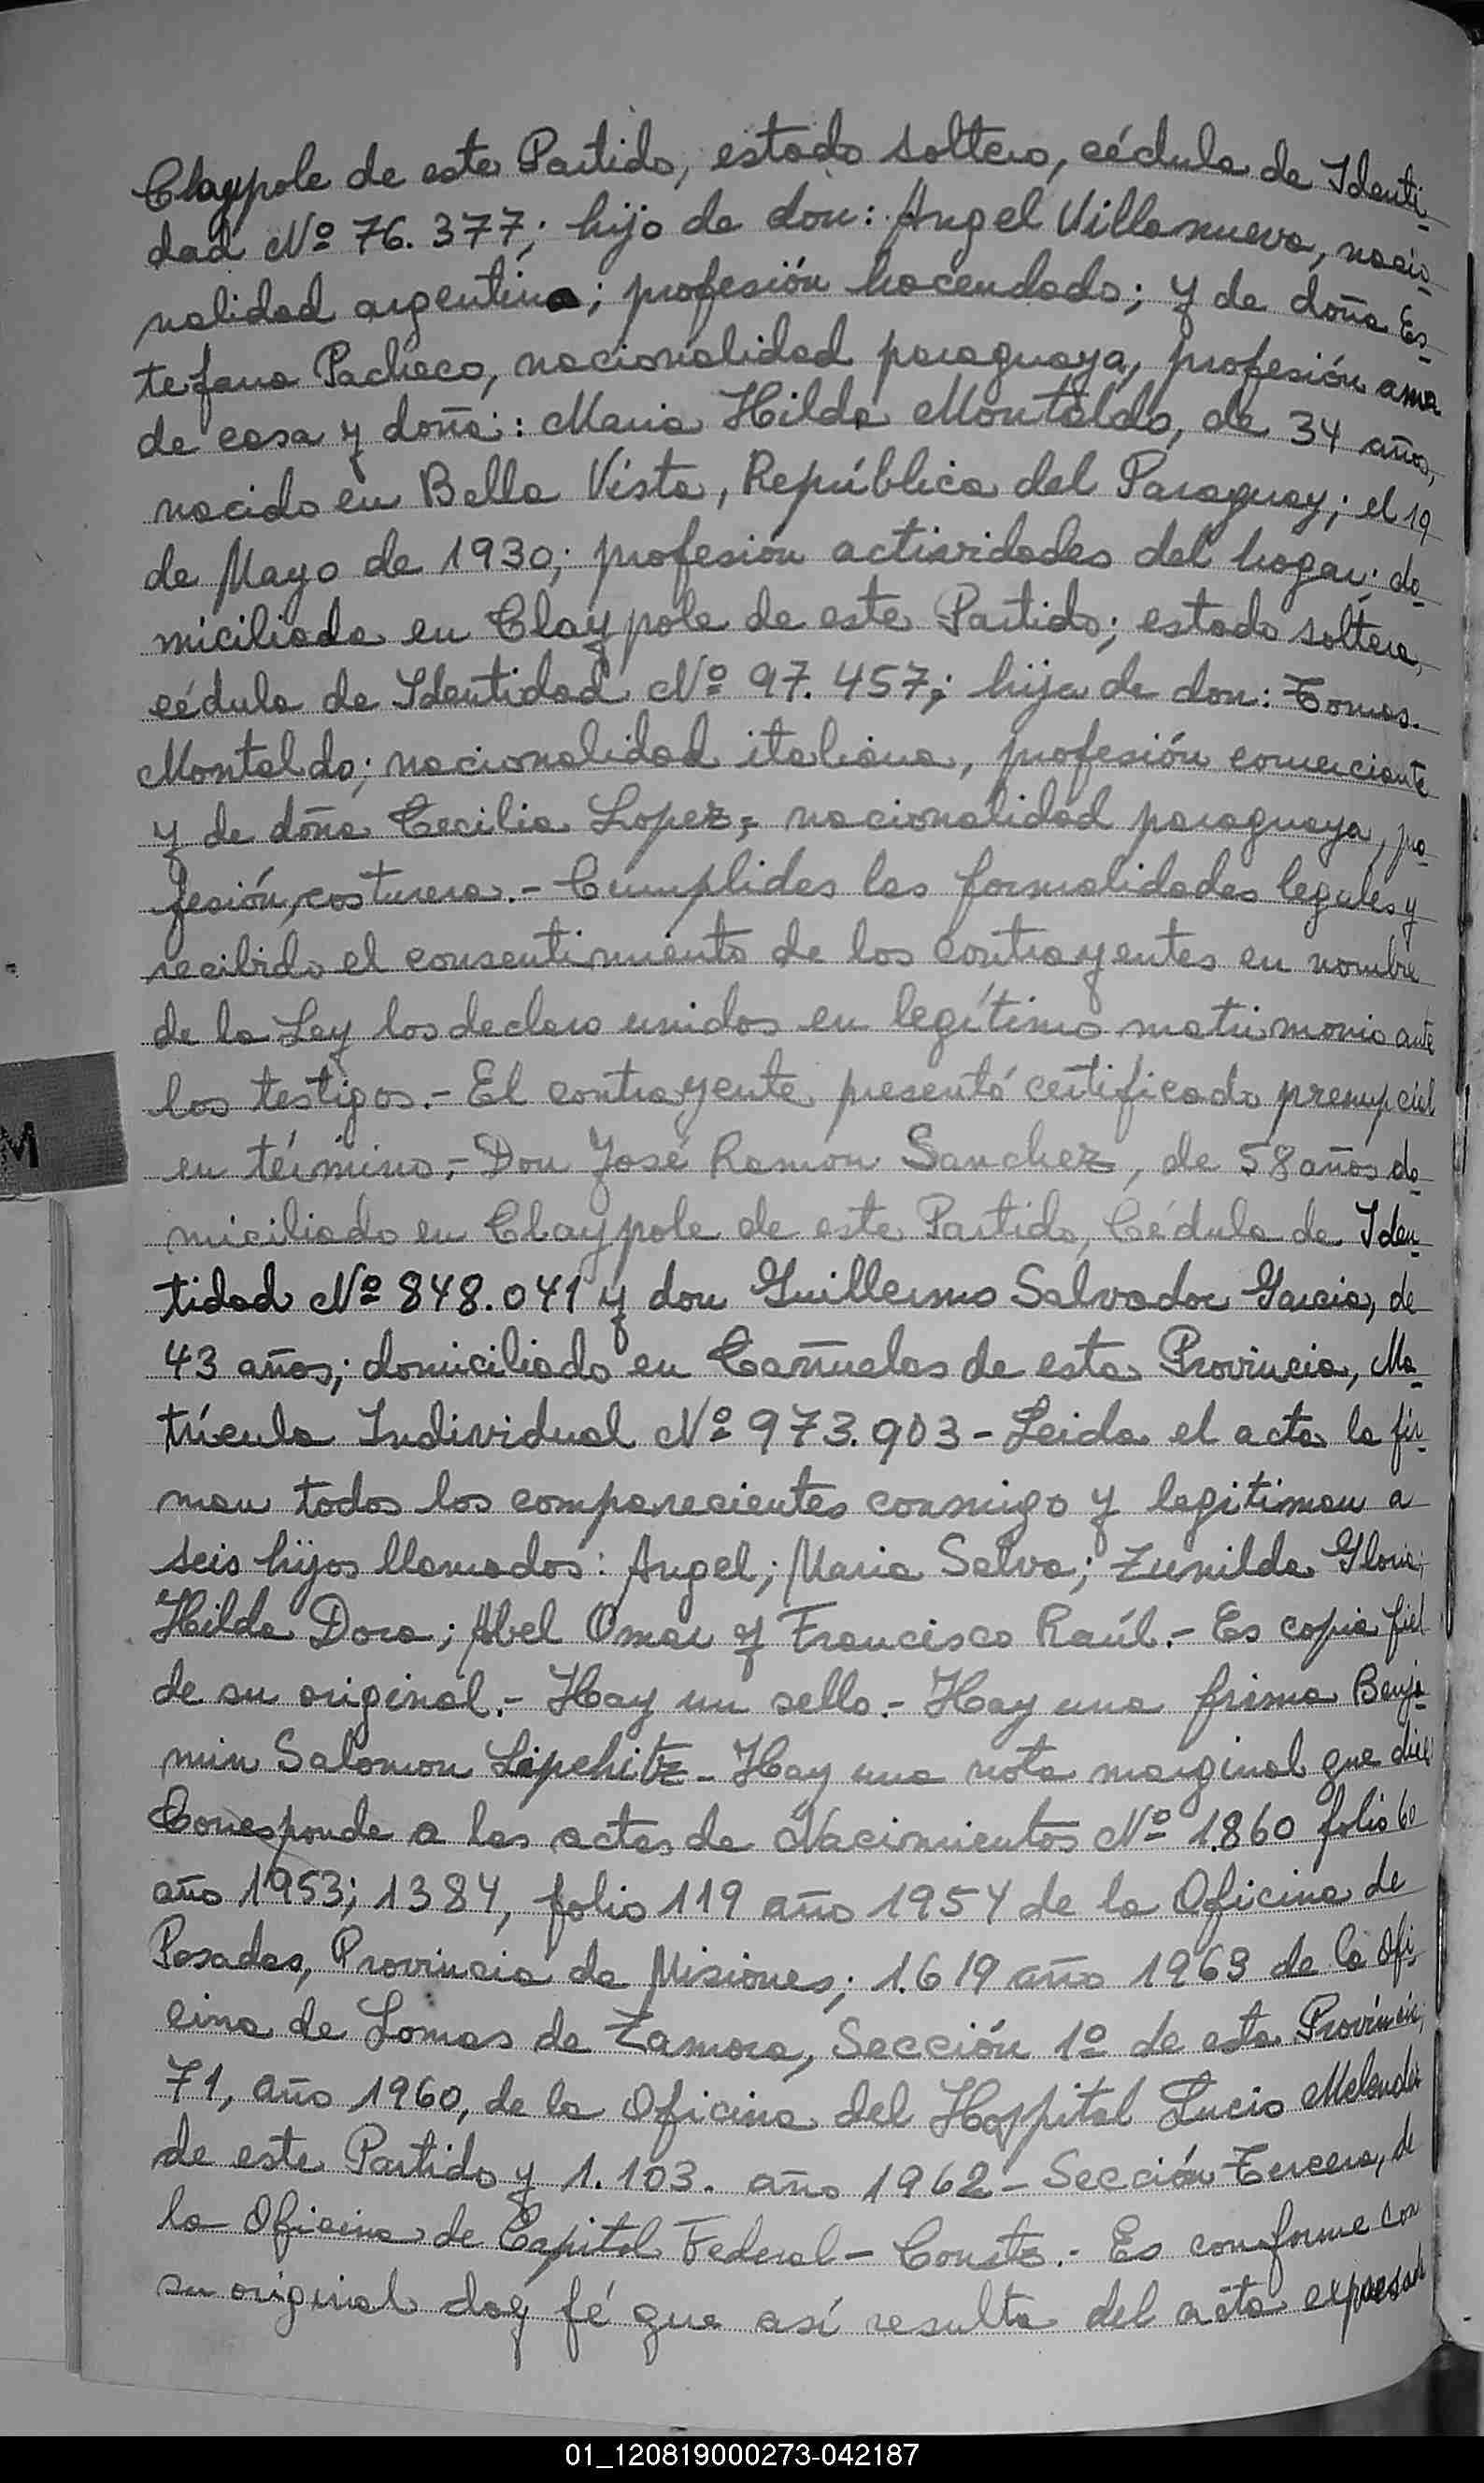 Claypole de este Partido, estado soltero, cédula de Identi-
dad Nº 76.377; hijo de don: Angel Villanueva, nacio-
nalidad argentina; profesión hacendado; y de doña Es-
tefana Pacheco, nacionalidad paraguaya, profesión ama
de casa y doña: Maria Hilda Montaldo, de 34 años,
nacido en Bella Vista, República del Paraguay; el 19
de Mayo de 1930; profesión actividades del hogar; do-
miciliada en Claypole de este Partido; estado soltera,
cédula de Identidad Nº 97.457; hija de don: Tomas.
Montaldo; nacionalidad italiana, profesión comerciante
y de doña Cecilia Lopez; nacionalidad paraguaya, pro-
fesión, costurera.- Cumplidas las formalidades legales y
recibido el consentimiento de los contrayentes en nombre
de la Ley los declaro unidos en legítimo matrimonio ante
los testigos.- El contrayente presentó certificado prenupcial
en término.- Don José Ramón Sanchez, de 58 años do-
miciliado en Claypole de este Partido, Cédula de Iden-
tidad Nº 848.041 y don Guillermo Salvador Garcia, de
43 años; domiciliado en Cañuelas de esta Provincia, Ma-
trícula Individual Nº 973.903 - Leida el acta la fir-
man todos los comparecientes conmigo y legitiman a
seis hijos llamados: Angel; Maria Selva; Zunilda Gloria;
Hilda Dora; Abel Omar y Francisco Raúl.- Es copia fiel
de su original.- Hay un sello.- Hay una frima Benja-
min Salomon Lipchitz - Hay una nota marginal que dice
Corresponde a las actas de Nacimientos Nº 1.860 folio 60
año 1953; 1384, folio 119 año 1954 de la Oficina de
Posadas, Provincia de Misiones; 1.619 año 1963 de la Ofi-
cina de Lomas de Zamora, Sección 1º de esta Provincia;
71, año 1960, de la Oficina del Hospital Lucio Melendez
de este Partido y 1.103. año 1962 - Sección Tercera, de
la Oficina de Capital Federal - Conste.- Es conforme con
su original doy fé que así resulta del acta expresada
01_120819000273-042187